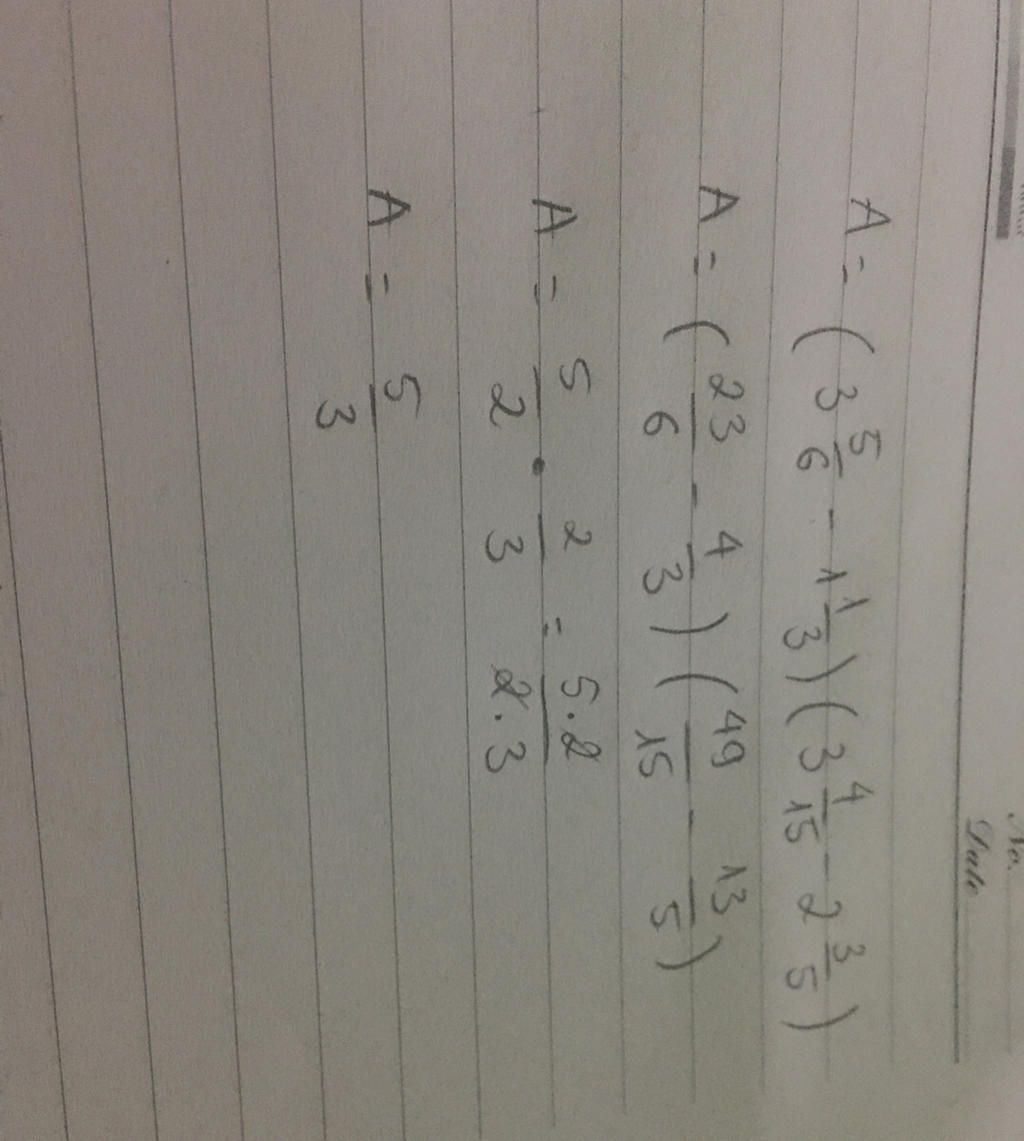 No.
Date
A = (3 5/6 - 1 1/3)(3 4/15 - 2 3/5)
A = (23/6 - 4/3)(49/15 - 13/5)
A = 5/2 · 2/3 = 5·2/2·3
A = 5/3